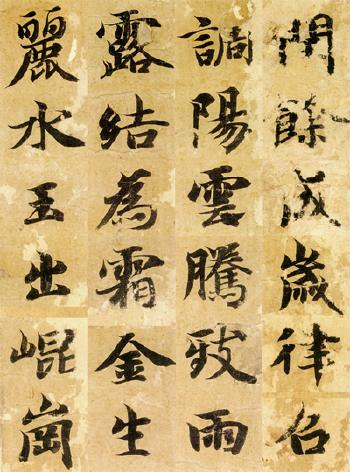 閏餘成歲律召
調陽雲騰致雨
露結為霜金生
麗水玉出崐崗